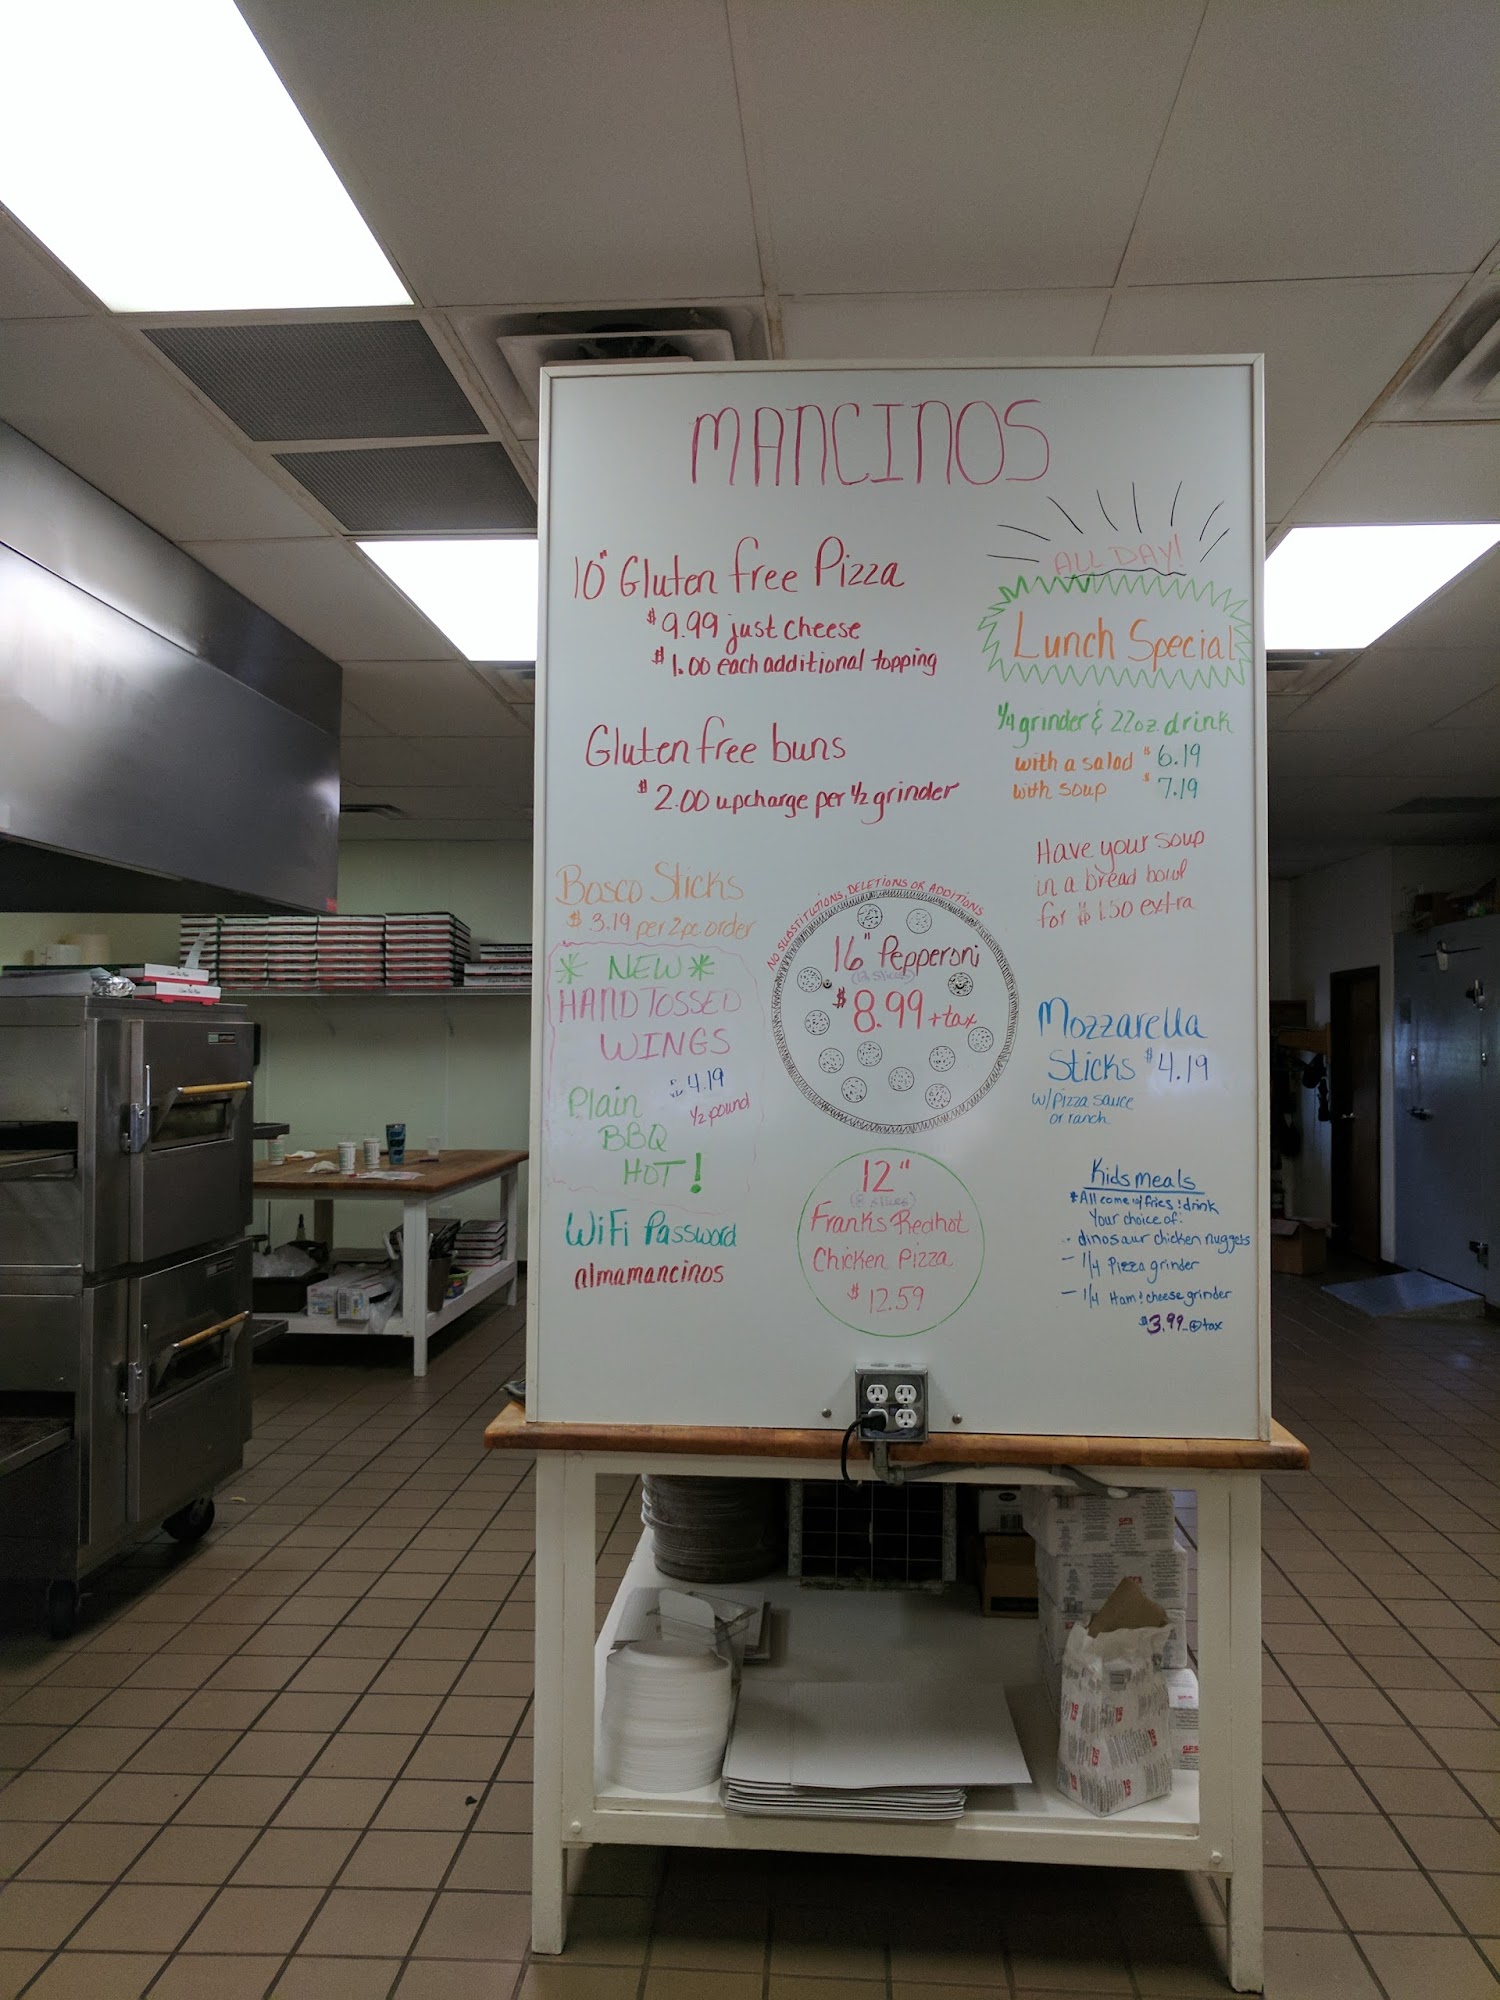 MANCINOS
10" Gluten free Pizza
$9.99 just cheese
$1.00 each additional topping
Gluten free buns
$2.00 upcharge per 1/2 grinder
ALL DAY!
Lunch Special
1/4 grinder & 22oz. drink
with a salad $6.19
with soup $7.19
Have your soup
in a bread bowl
for $1.50 extra
Bosco Sticks
$3.19 per 2pc order
NEW
HAND TOSSED
WINGS
$4.19
1/2 pound
Plain
BBQ
HOT!
WiFi Password
almamancinos
NO SUBSTITUTIONS, DELETIONS OR ADDITIONS
16" Pepperoni
(12 slices)
$8.99 + tax
12"
(8 slices)
Franks Redhot
Chicken Pizza
$12.59
Mozzarella
Sticks $4.19
w/pizza sauce
or ranch
Kids meals
*All come w/ fries & drink
Your choice of:
- dinosaur chicken nuggets
- 1/4 Pizza grinder
- 1/4 Ham & cheese grinder
$3.99 + tax
GFS
GFS